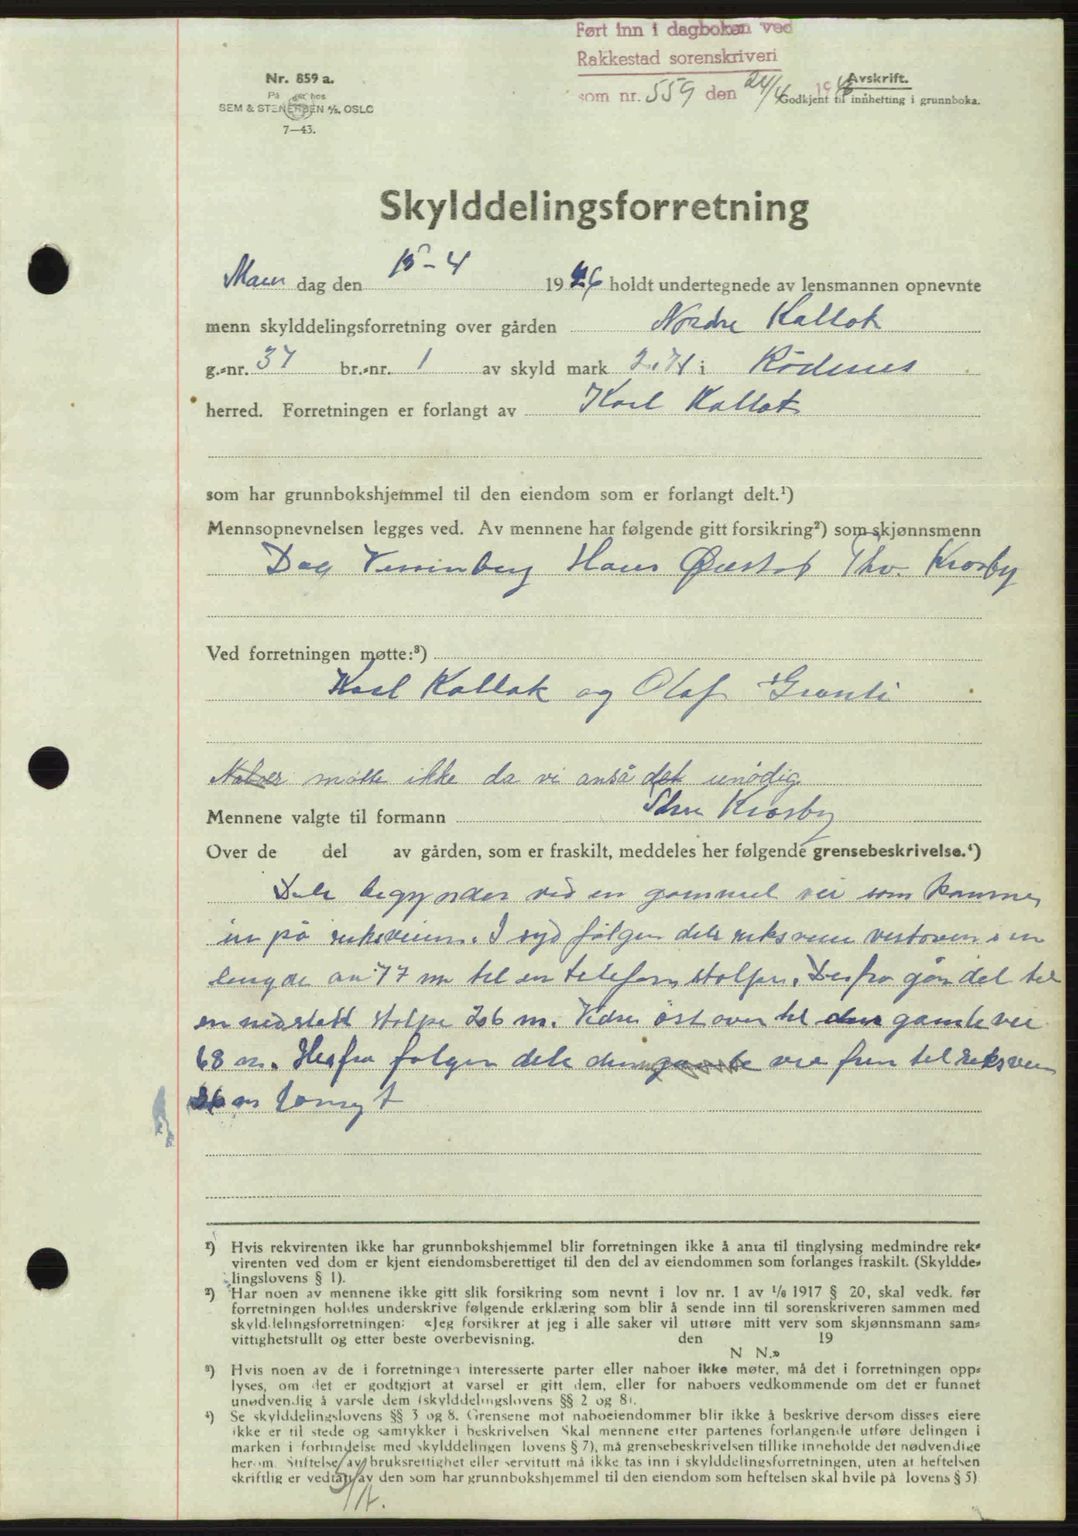 Ført inn i dagboken ved
Rakkestad sorenskriveri
som nr. 559 den 24/4 1946
Avskrift.
Godkjent til innhefting i grunnboka.
Nr. 859 a.
På lager hos
SEM & STENERSEN A/S. OSLO
7—43.
Skylddelingsforretning
Man dag den 15-4 1946 holdt undertegnede av lensmannen opnevnte
menn skylddelingsforretning over gården Nordre Kallak
g.-nr. 37 br.-nr. 1 av skyld mark 2.74 i Rödenes
herred. Forretningen er forlangt av Karl Kallak
som har grunnbokshjemmel til den eiendom som er forlangt delt.¹)
Mennsopnevnelsen legges ved. Av mennene har følgende gitt forsikring²) som skjønnsmenn
Dag Hans Thv. Krosby
Ved forretningen møtte:³)
Karl Kallak og Olaf
Naboer møtte ikke da vi anså det unödig
Mennene valgte til formann Thv Krosby
Over de del av gården, som er fraskilt, meddeles her følgende grensebeskrivelse.⁴)
Dele begynder ved en gammel vei som kommer
in på riksveien. I syd fölger dele riksveien vestover i en
lengde av 77 m til en telefonstolpe. Derfra går del til
en nedsatt stolpe 26 m. Videre östover til den gamle vei
68 m. Herfra fölger dele den gamle vei frem til riksveien
26 m langt
¹) Hvis rekvirenten ikke har grunnbokshjemmel blir forretningen ikke å anta til tinglysing medmindre rek-
virenten ved dom er kjent eiendomsberettiget til den del av eiendommen som forlanges fraskilt. (Skyldde-
lingslovens § 1).
²) Har noen av mennene ikke gitt slik forsikring som nevnt i lov nr. 1 av 1/6 1917 § 20, skal vedk. før
forretningen holdes underskrive følgende erklæring som blir å sende inn til sorenskriveren sammen med
skylddelingsforretningen: «Jeg forsikrer at jeg i alle saker vil utføre mitt verv som skjønnsmann sam-
vittighetsfullt og etter beste overbevisning. den 19
N N.»
³) Hvis noen av de i forretningen interesserte parter eller naboer ikke møter, må det i forretningen opp-
lyses, om det er godtgjort at varsel er gitt dem, eller for naboers vedkommende om det er funnet
unødvendig å varsle dem (skylddelingslovens §§ 2 og 8).
⁴) Se skylddelingslovens §§ 3 og 8. Grensene mot naboeiendommer blir ikke å beskrive dersom disses eiere
ikke er til stede og samtykker i beskrivelsen Skal mennene etter partenes forlangende utføre delingen i
marken i forbindelse med skylddelingen lovens § 7), må grensebeskrivelsen tillike inneholde det nødvendige
herom. Stiftelse av bruksrettighet eller servitutt må ikke tas inn i skylddelingsforretningen, uten at heftelsen
skriftlig er vedtatt av den som har grunnbokshjemmel til den eiendom som heftelsen skal hvile på lovens § 5)